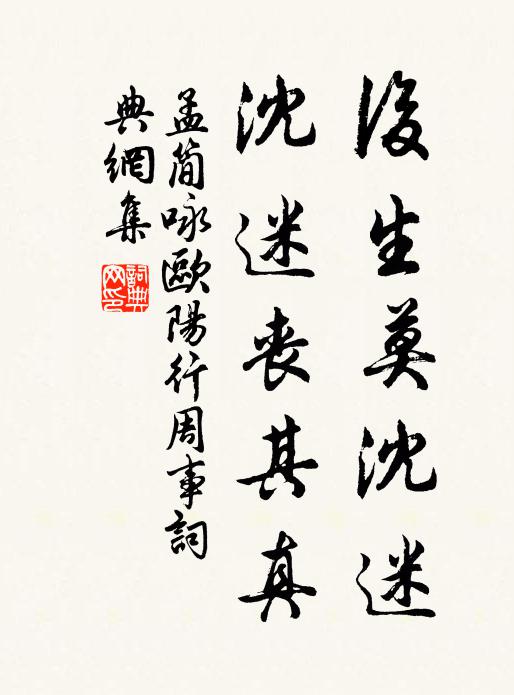 後生莫沈迷
沈迷丧其真
孟简咏歐陽行周事詞
典網集
詞典
网印